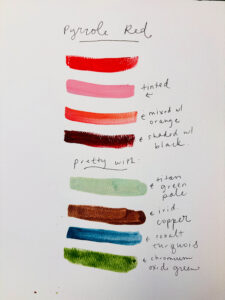 Pyrrole Red
tinted
mixed w/
orange
shaded w/
black
pretty with:
titan
green
pale
irid.
copper
cobalt
turquois
chromium
oxid green